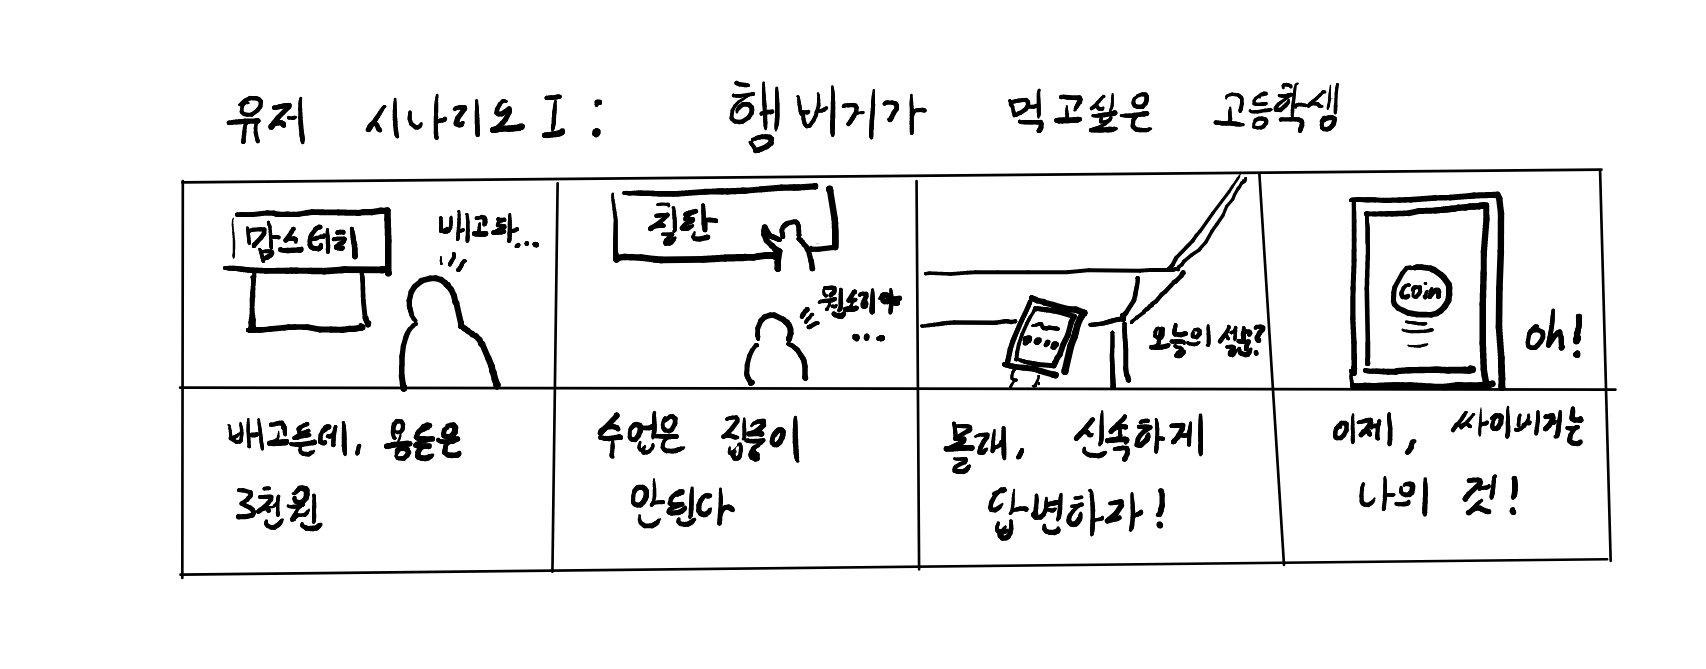 유저 시나리오 1: 햄버거가 먹고싶은 고등학생
맘스터치
배고파...
질탄
뭔소리야...
오늘의 설문?
coin
oh!
배고픈데, 용돈은
3천원
수업은 집중이
안된다
몰래, 신속하게
답변하자!
이제, 싸이버거는
나의 것!